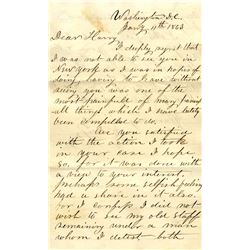 Washington D.C.
Jany 11th 1863
Dear Harry
I deeply regret that
I was not able to see you in
New York as I was in hopes of
doing, having to leave without
seeing you was one of the
most painful of many painful
all things which I have lately
been compelled to do.
Are you satisfied
with the action I took
in your case I hope
so, for it was done with
a view to your interest.
Perhaps some selfish feeling
had a share in it also
for I confess I did not
wish to see my old Staff
remaining under a man
whom I detest both